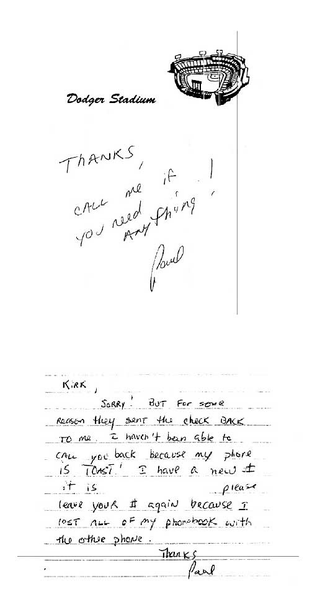 Dodger Stadium
THANKS,
CALL me if
you need
ANYthing!
Paul
Kirk,
SORRY! BUT FOR some
REASON they sent the check BACK
TO me. I haven't been able to
CALL you back because my phone
IS TOAST! I have a new #
it is please
leave your # again because I
lost ALL OF my phonebook with
the other phone.
Thanks
Paul